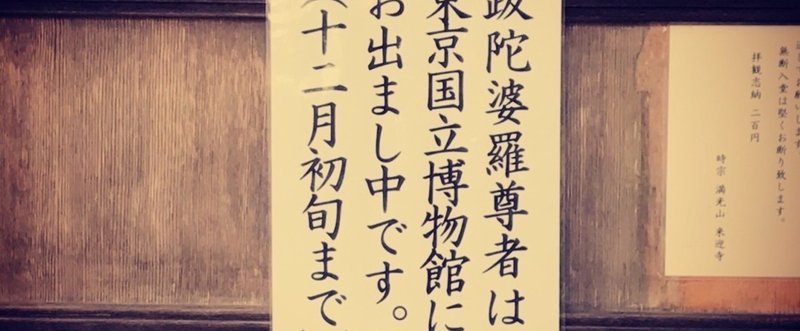 跋陀婆羅尊者は
東京国立博物館に
お出まし中です。
十二月初旬まで
お願いします
無断入堂は堅くお断り致します。
拝観志納 二百円
時宗 満光山 来迎寺